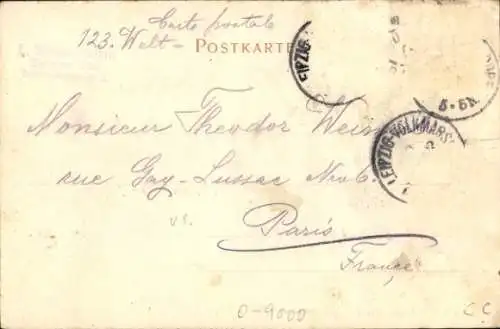 Carte postale
123. Welt - POSTKARTE
LEIPZIG
5-6N
LEIPZIG-VOLKMARS
Monsieur Theodor
rue Gay-Lussac No 6.
Paris
France
0-9000